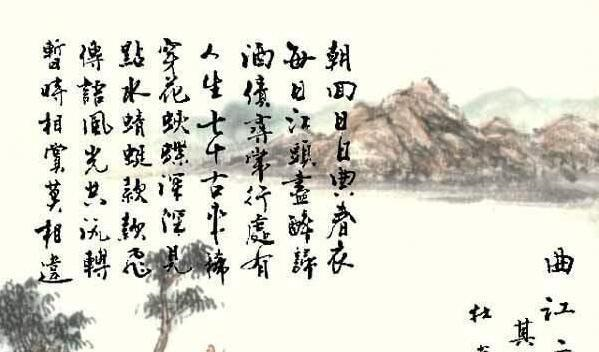 曲江
其
杜
朝回日日典春衣
每日江頭盡醉歸
酒債尋常行處有
人生七十古來稀
穿花蛺蝶深深見
點水蜻蜓款款飛
傳語風光共流轉
暫時相賞莫相違